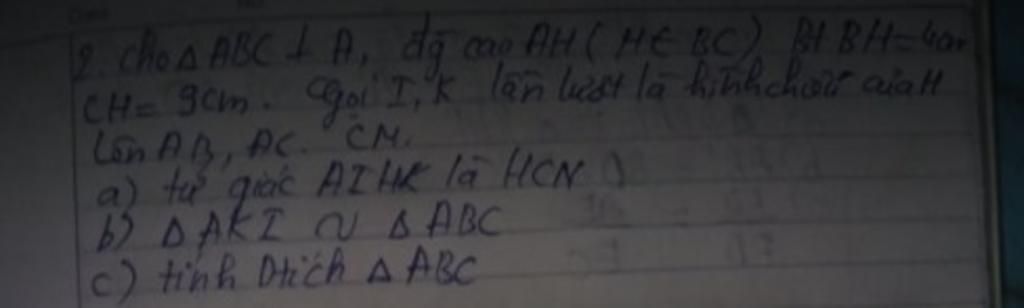 2. cho △ ABC ⊥ A, đg cao AH (H ∈ BC) Bt BH = 4cm
CH = 9cm. Gọi I, K lần lượt là hình chiếu của H
lên AB, AC. CM.
a) tứ giác AIHK là HCN
b) △ AKI ∽ △ ABC
c) tính Dtích △ ABC